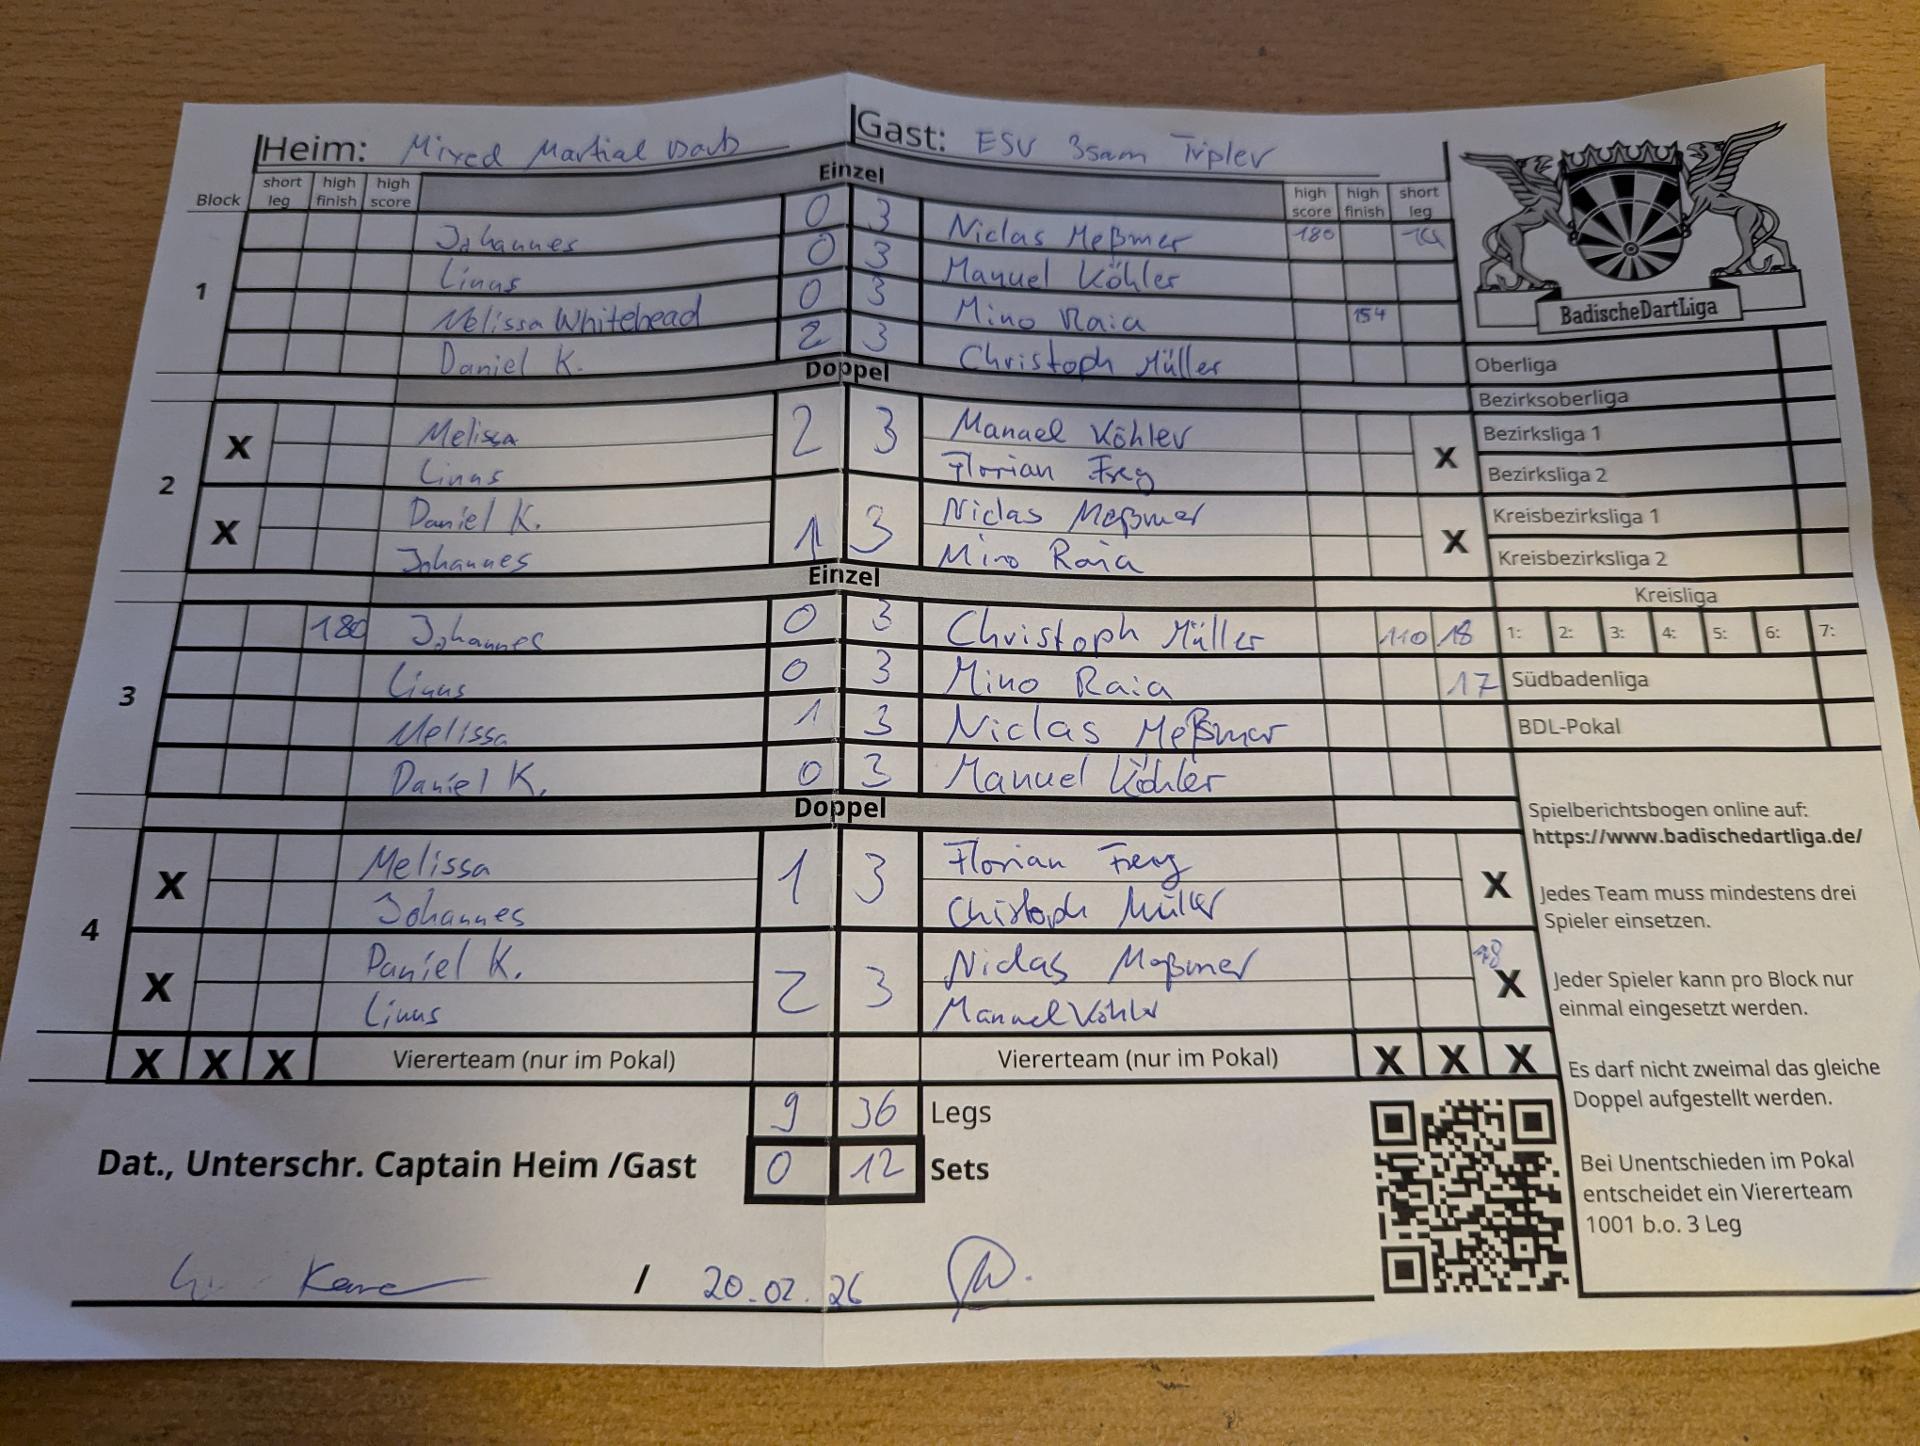 Heim: Mixed Martial Darts Gast: ESV 3sam Tripler
Einzel
Block short leg high finish high score high score high finish short leg
1
Johannes 0 3 Niclas Meßmer 180
Linus 0 3 Manuel Köhler
Melissa Whitehead 0 3 Mino Raia 154
Daniel K. 2 3 Christoph Müller
BadischeDartLiga
Oberliga
Doppel
Bezirksoberliga
2
X Melissa 2 3 Manuel Köhler X
Linus Florian Frey
Bezirksliga 1
Bezirksliga 2
X Daniel K. 1 3 Niclas Meßmer X
Johannes Mino Raia
Kreisbezirksliga 1
Kreisbezirksliga 2
Einzel
Kreisliga
3
180 Johannes 0 3 Christoph Müller 110 18
1: 2: 3: 4: 5: 6: 7:
Linus 0 3 Mino Raia 17
Südbadenliga
Melissa 1 3 Niclas Meßmer
BDL-Pokal
Daniel K. 0 3 Manuel Köhler
Doppel
4
X Melissa 1 3 Florian Frey X
Johannes Christoph Müller
X Daniel K. 2 3 Niclas Meßmer 18 X
Linus Manuel Köhler
X X X Viererteam (nur im Pokal) Viererteam (nur im Pokal) X X X
9 36 Legs
0 12 Sets
Dat., Unterschr. Captain Heim /Gast
/ 20.02.26
Spielberichtsbogen online auf:
https://www.badischedartliga.de/
Jedes Team muss mindestens drei
Spieler einsetzen.
Jeder Spieler kann pro Block nur
einmal eingesetzt werden.
Es darf nicht zweimal das gleiche
Doppel aufgestellt werden.
Bei Unentschieden im Pokal
entscheidet ein Viererteam
1001 b.o. 3 Leg